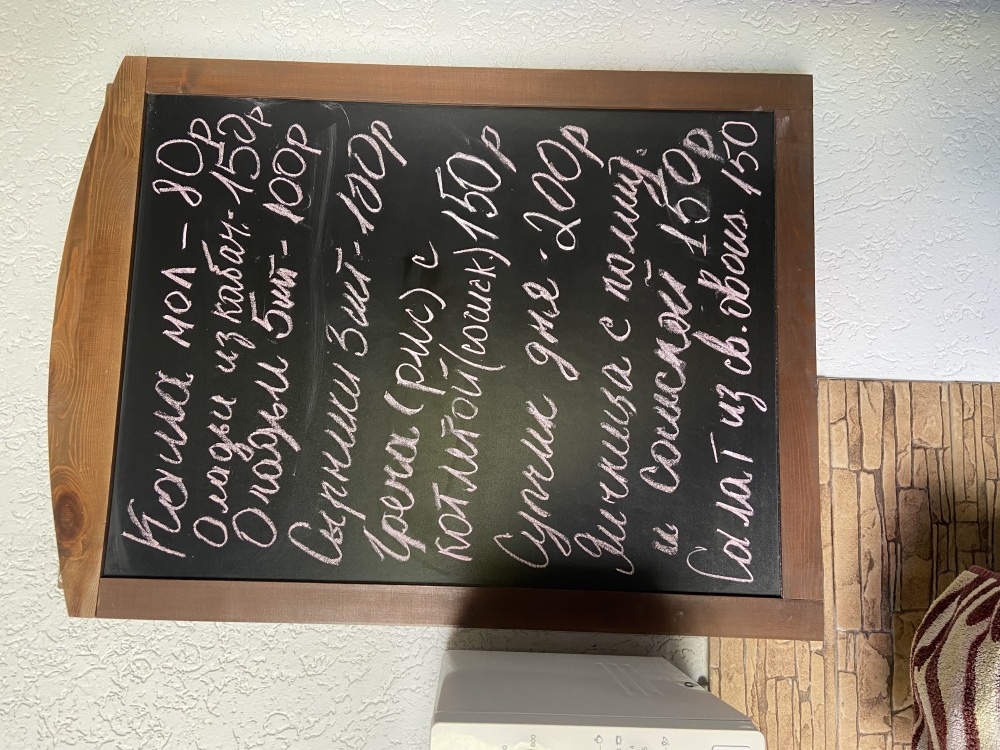 Каша мол - 80р
Оладьи из кабач. - 150р
Оладьи 5шт - 100р
Сырники 3шт - 100р
Гречка (рис) с
котлетой (сосиск) 150р
Супчик дня - 200р
Яичница с помид.
и сосиской 150р
Салат из св. овощ 150